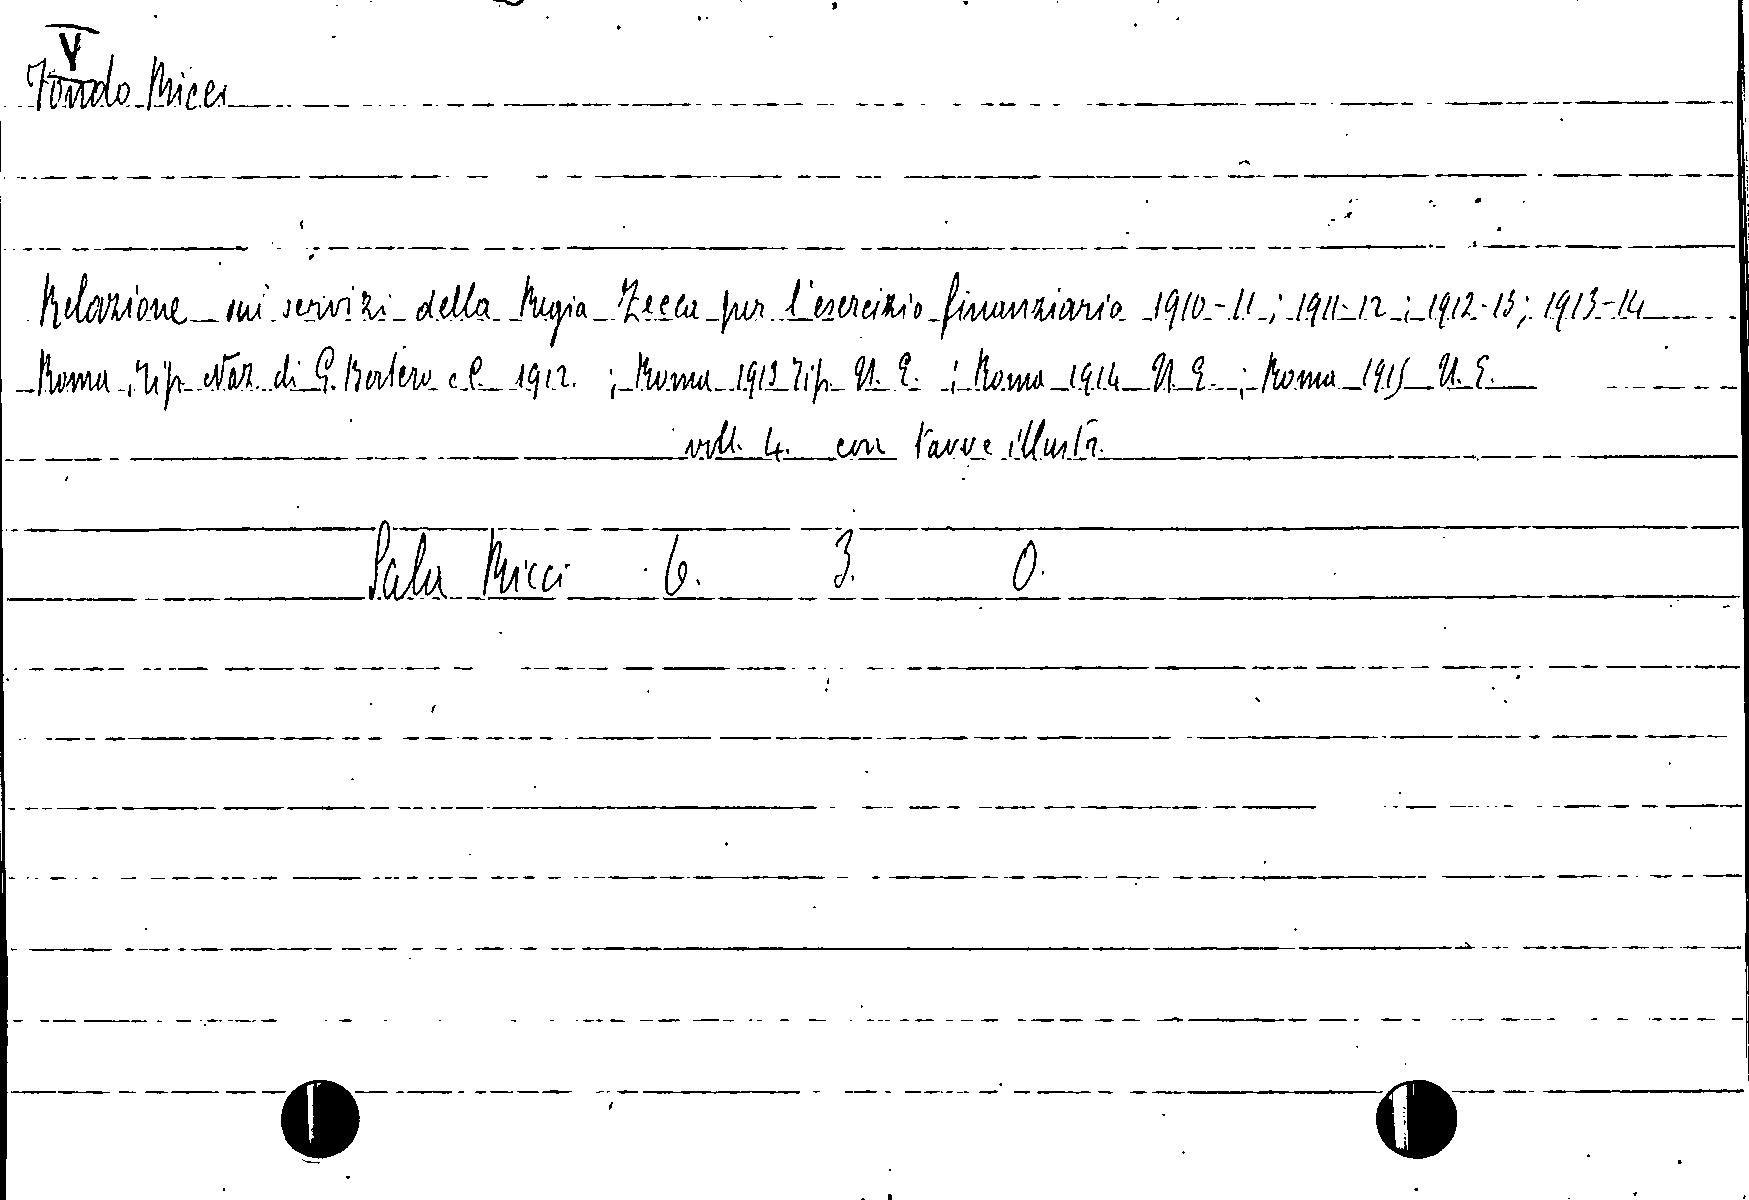 V
Fondo Ricci
Relazione sui servizi della Regia Zecca per l'esercizio finanziario 1910-11; 1911-12; 1912-13; 1913-14
Roma, Tip. Naz. di G. Bertero e C. 1912. ; Roma 1913 Tip. U. E. ; Roma 1914 U. E. ; Roma 1915 U. E.
voll. 4. con tavve illustr.
Sala Ricci 6. 3. 0.